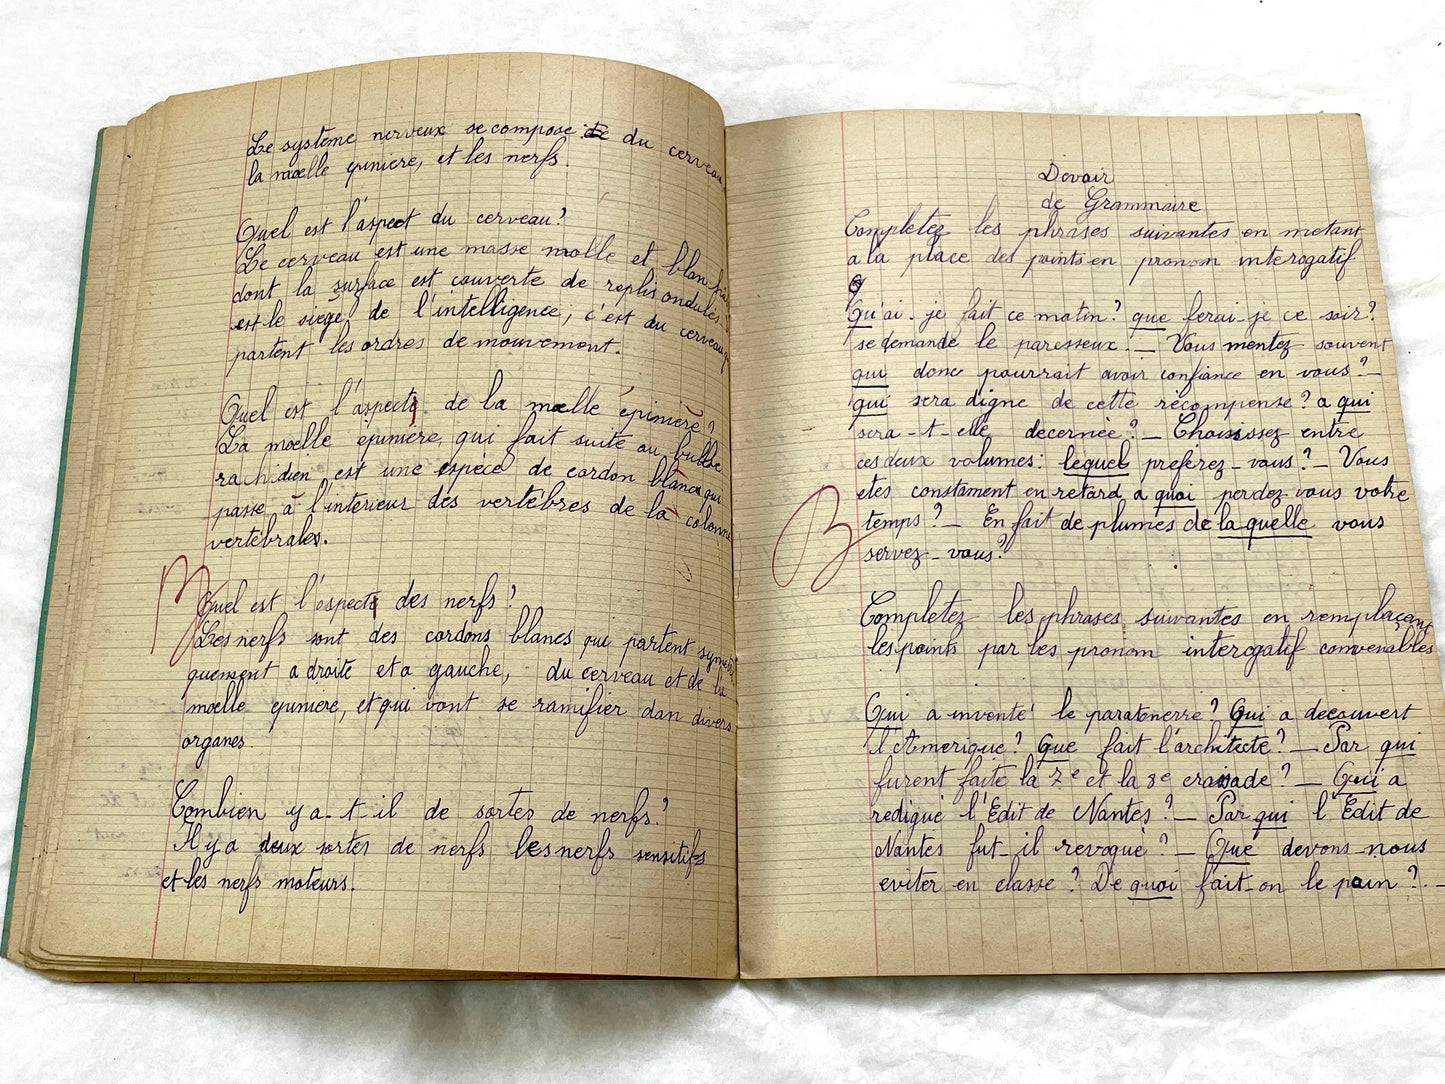 Le système nerveux se compose: de du cerveau
la moelle epiniere, et les nerfs.
Quel est l'aspect du cerveau?
Le cerveau est une masse molle et blanche
dont la surface est couverte de replis ondulés
est le siège de l'intelligence, c'est du cerveau que
partent les ordres de mouvement.
Quel est l'aspect de la moelle épinière?
La moelle epiniere, qui fait suite au bulbe
rachidien est une espèce de cordon blanc qui
passe à l'intérieur des vertèbres de la colonne
vertébrales.
Quel est l'aspect des nerfs?
Les nerfs sont des cordons blancs qui partent symetri
quement a droite et a gauche, du cerveau et de la
moelle epiniere, et qui vont se ramifier dan divers
organes.
Combien y a-t-il de sortes de nerfs?
Il y a deux sortes de nerfs les nerfs sensitifs
et les nerfs moteurs.
Devoir
de Grammaire
Completez les phrases suivantes en metant
a la place des points en pronom interogatif
Qu'ai-je fait ce matin? que ferai-je ce soir?
se demande le paresseux. _ Vous mentez souvent
qui donc pourrait avoir confiance en vous? _
qui sera digne de cette recompense? a qui
sera-t-elle decernée? _ Choisissez entre
ces deux volumes: lequel preferez-vous? _ Vous
etes constament en retard a quoi perdez vous votre
temps? _ En fait de plumes de laquelle vous
servez-vous?
B
Completez les phrases suivantes en remplaçant
les points par les pronom interogatif convenables
Qui a inventé le paratonerre? Qui a decouvert
l'Amerique? Que fait l'architecte? _ Par qui
furent faite la 7e et la 8e craisade? _ Qui a
redigué l'Edit de Nantes? _ Par qui l'Edit de
Nantes fut-il revoqué? _ Que devons-nous
eviter en classe? De quoi fait-on le pain? . _